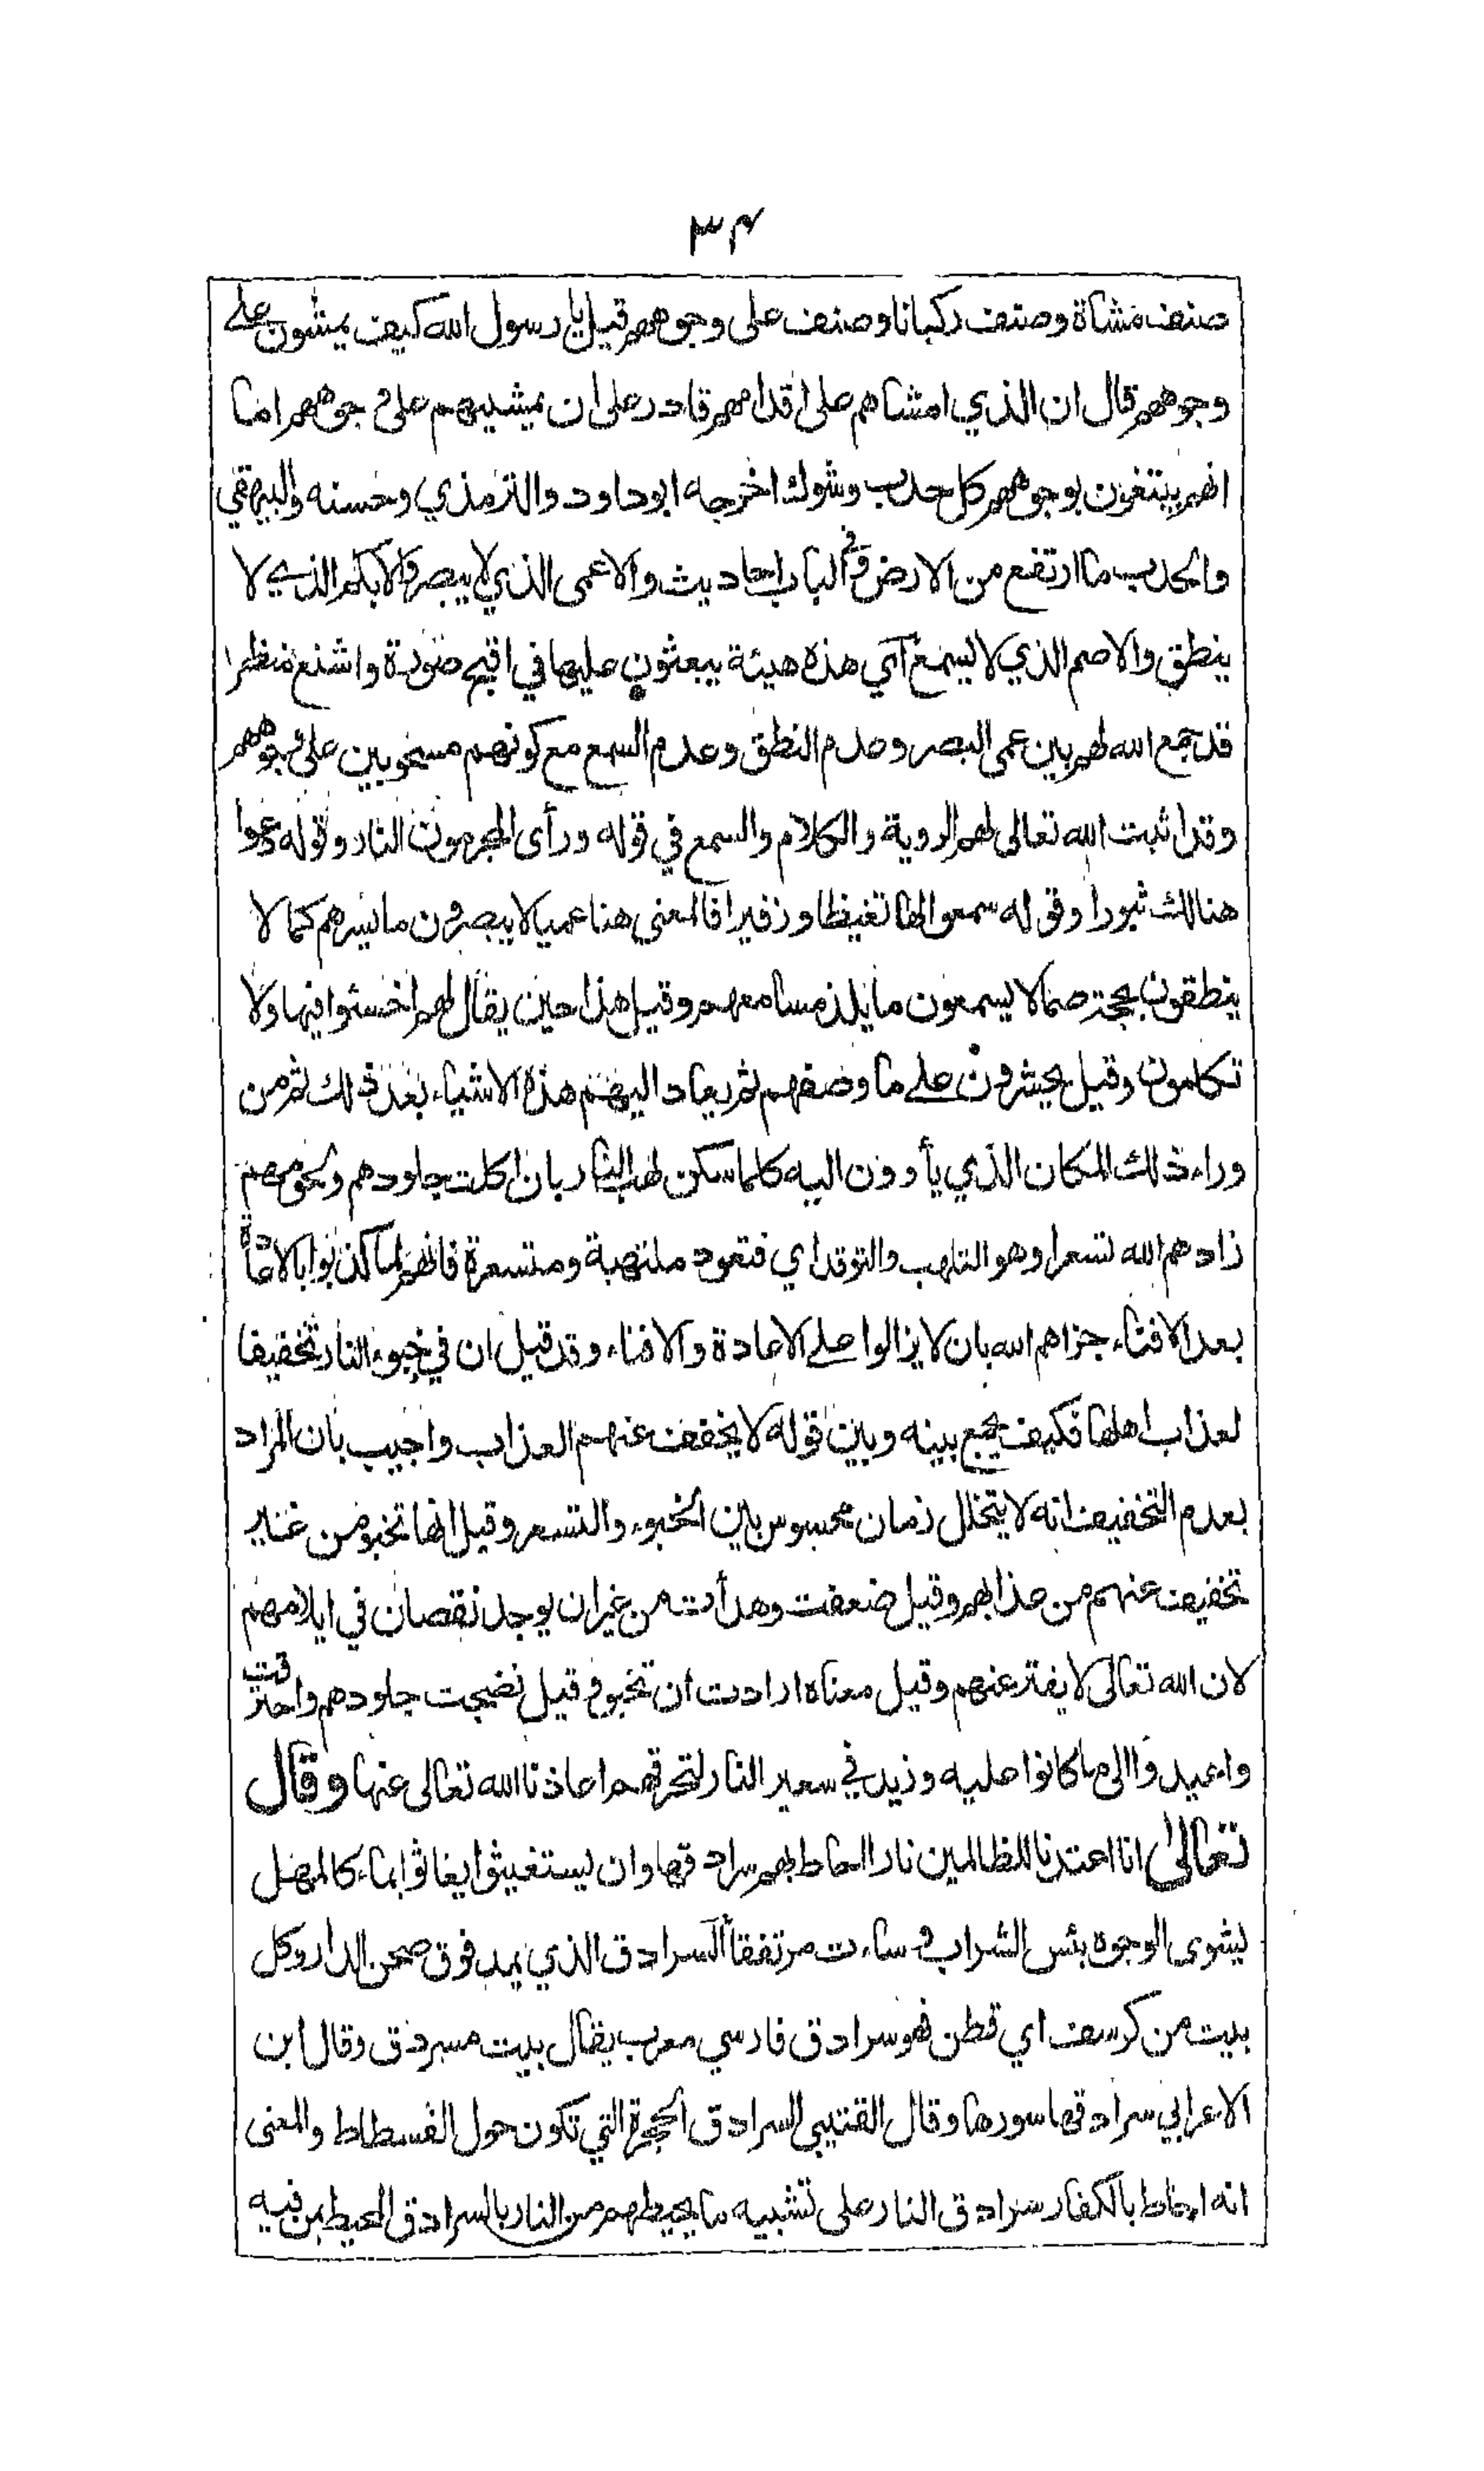 ٣٤
صنف مشاة وصنف ركبانا وصنف على وجوههم قيل يا رسول الله كيف يمشون على
وجوههم قال ان الذي امشاهم على اقدامهم قادر على ان يمشيهم على وجوههم اما
انهم يتقون بوجوههم كل حدب وشوك اخرجه ابوداود والترمذي وحسنه والبيهقي
والحدب ما ارتفع من الارض وفي الباب احاديث والاعمى الذي لا يبصر والابكم الذي لا
ينطق والاصم الذي لا يسمع اي هذه هيئة يبعثون عليها في اقبح صورة واشنع منظر
قد جمع الله لهم بين عمى البصر وعدم النطق وعدم السمع مع كونهم مسحوبين على وجوههم
وقد اثبت الله تعالى لهم الروية والكلام والسمع في قوله ورأى المجرمون النار وقوله دعوا
هنالك ثبورا وقوله سمعوا لها تغيظا وزفيرا فالمعنى هنا عميا لا يبصرون ما يسرهم كما لا
ينطقون بحجة صما لا يسمعون ما يلذ مسامعهم وقيل هذا حين يقال لهم اخسئوا فيها ولا
تكلمون وقيل يحشرون على ما وصفهم ثم يعاد اليهم هذه الاشياء بعد ذلك ثم من
وراء ذلك المكان الذي يأوون اليه كلما سكن لهب النار بان اكلت جلودهم ولحومهم
زادهم الله تسعرا وهو التلهب والتوقد اي فتعود ملتهبة ومتسعرة فانهم لما كذبوا بالاعادة
بعد الافناء جزاهم الله بان لا يزالوا على الاعادة والافناء وقد قيل ان في خبوء النار تخفيفا
لعذاب اهلها فكيف يجمع بينه وبين قوله لا يخفف عنهم العذاب واجيب بان المراد
بعدم التخفيف انه لا يتخلل زمان محسوس بين الخبوء والتسعر وقيل انها تخبو من غير
تخفيف عنهم من عذابهم وقيل ضعفت وهدأت من غير ان يوجد نقصان في ايلامهم
لان الله تعالى لا يفتر عنهم وقيل معناه ارادت ان تخبو وقيل نضجت جلودهم واحترقت
واعيدوا الى ما كانوا عليه وزيد في سعير النار لتحرقهم اعاذنا الله تعالى عنها وقال
تعالى انا اعتدنا للظالمين نارا احاط بهم سرادقها وان يستغيثوا يغاثوا بماء كالمهل
يشوى الوجوه بئس الشراب وساءت مرتفقا السرادق الذي يمد فوق صحن الدار وكل
بيت من كرسف اي قطن فهو سرادق فارسي معرب يقال بيت مسردق وقال ابن
الاعرابي سرادقها سورها وقال القتيبي السرادق الحجرة التي تكون حول الفسطاط والمعنى
انه احاط بالكفار سرادق النار على تشبيه ما يحيط بهم من النار بالسرادق المحيط بمن فيه